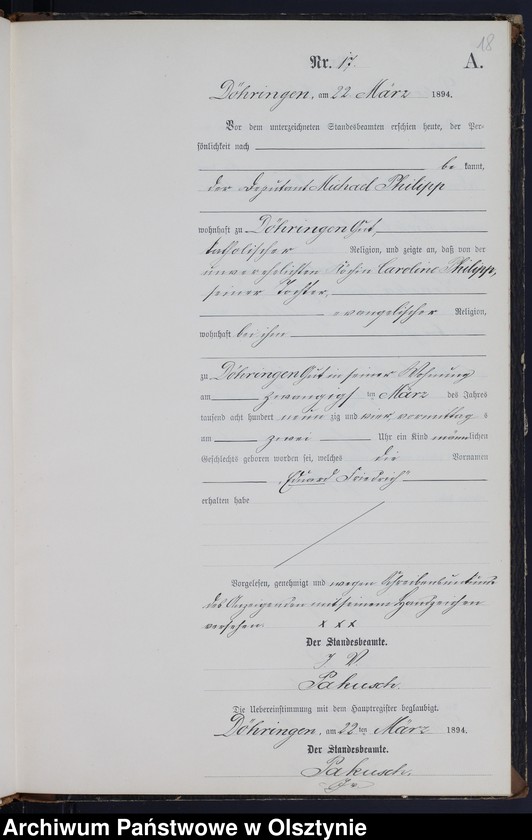 18
Nr. 17. A.
Döhringen, am 22 März 1894.
Vor dem unterzeichneten Standesbeamten erschien heute, der Per-
sönlichkeit nach
be kannt,
der Deputant Michael Philipp
wohnhaft zu Döhringen Gut,
katholischer Religion, und zeigte an, daß von der
unverehelichten Köchin Caroline Philipp,
seiner Tochter,
evangelischer Religion,
wohnhaft bei ihm
zu Döhringen Gut in seiner Wohnung
am zwanzigsten März des Jahres
tausend acht hundert neunzig und vier, vormittags
um zwei Uhr ein Kind männlichen
Geschlechts geboren worden sei, welches die Vornamen
Eduard Friedrich
erhalten habe
Vorgelesen, genehmigt und wegen Schreibensunkunde
des Anzeigenden mit seinem Handzeichen
versehen. x x x
Der Standesbeamte.
J. V.
Pakusch.
Die Uebereinstimmung mit dem Hauptregister beglaubigt.
Döhringen, am 22ten März 1894.
Der Standesbeamte.
Pakusch.
J. V.
Archiwum Państwowe w Olsztynie